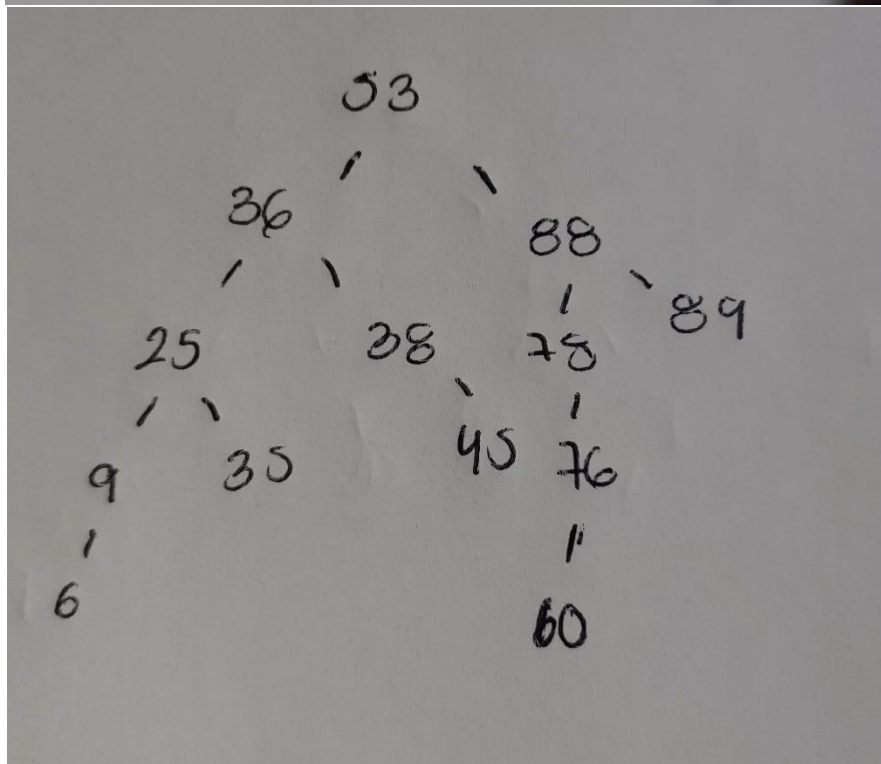 53
36 88
25 38 78 89
9 35 45 76
6 60